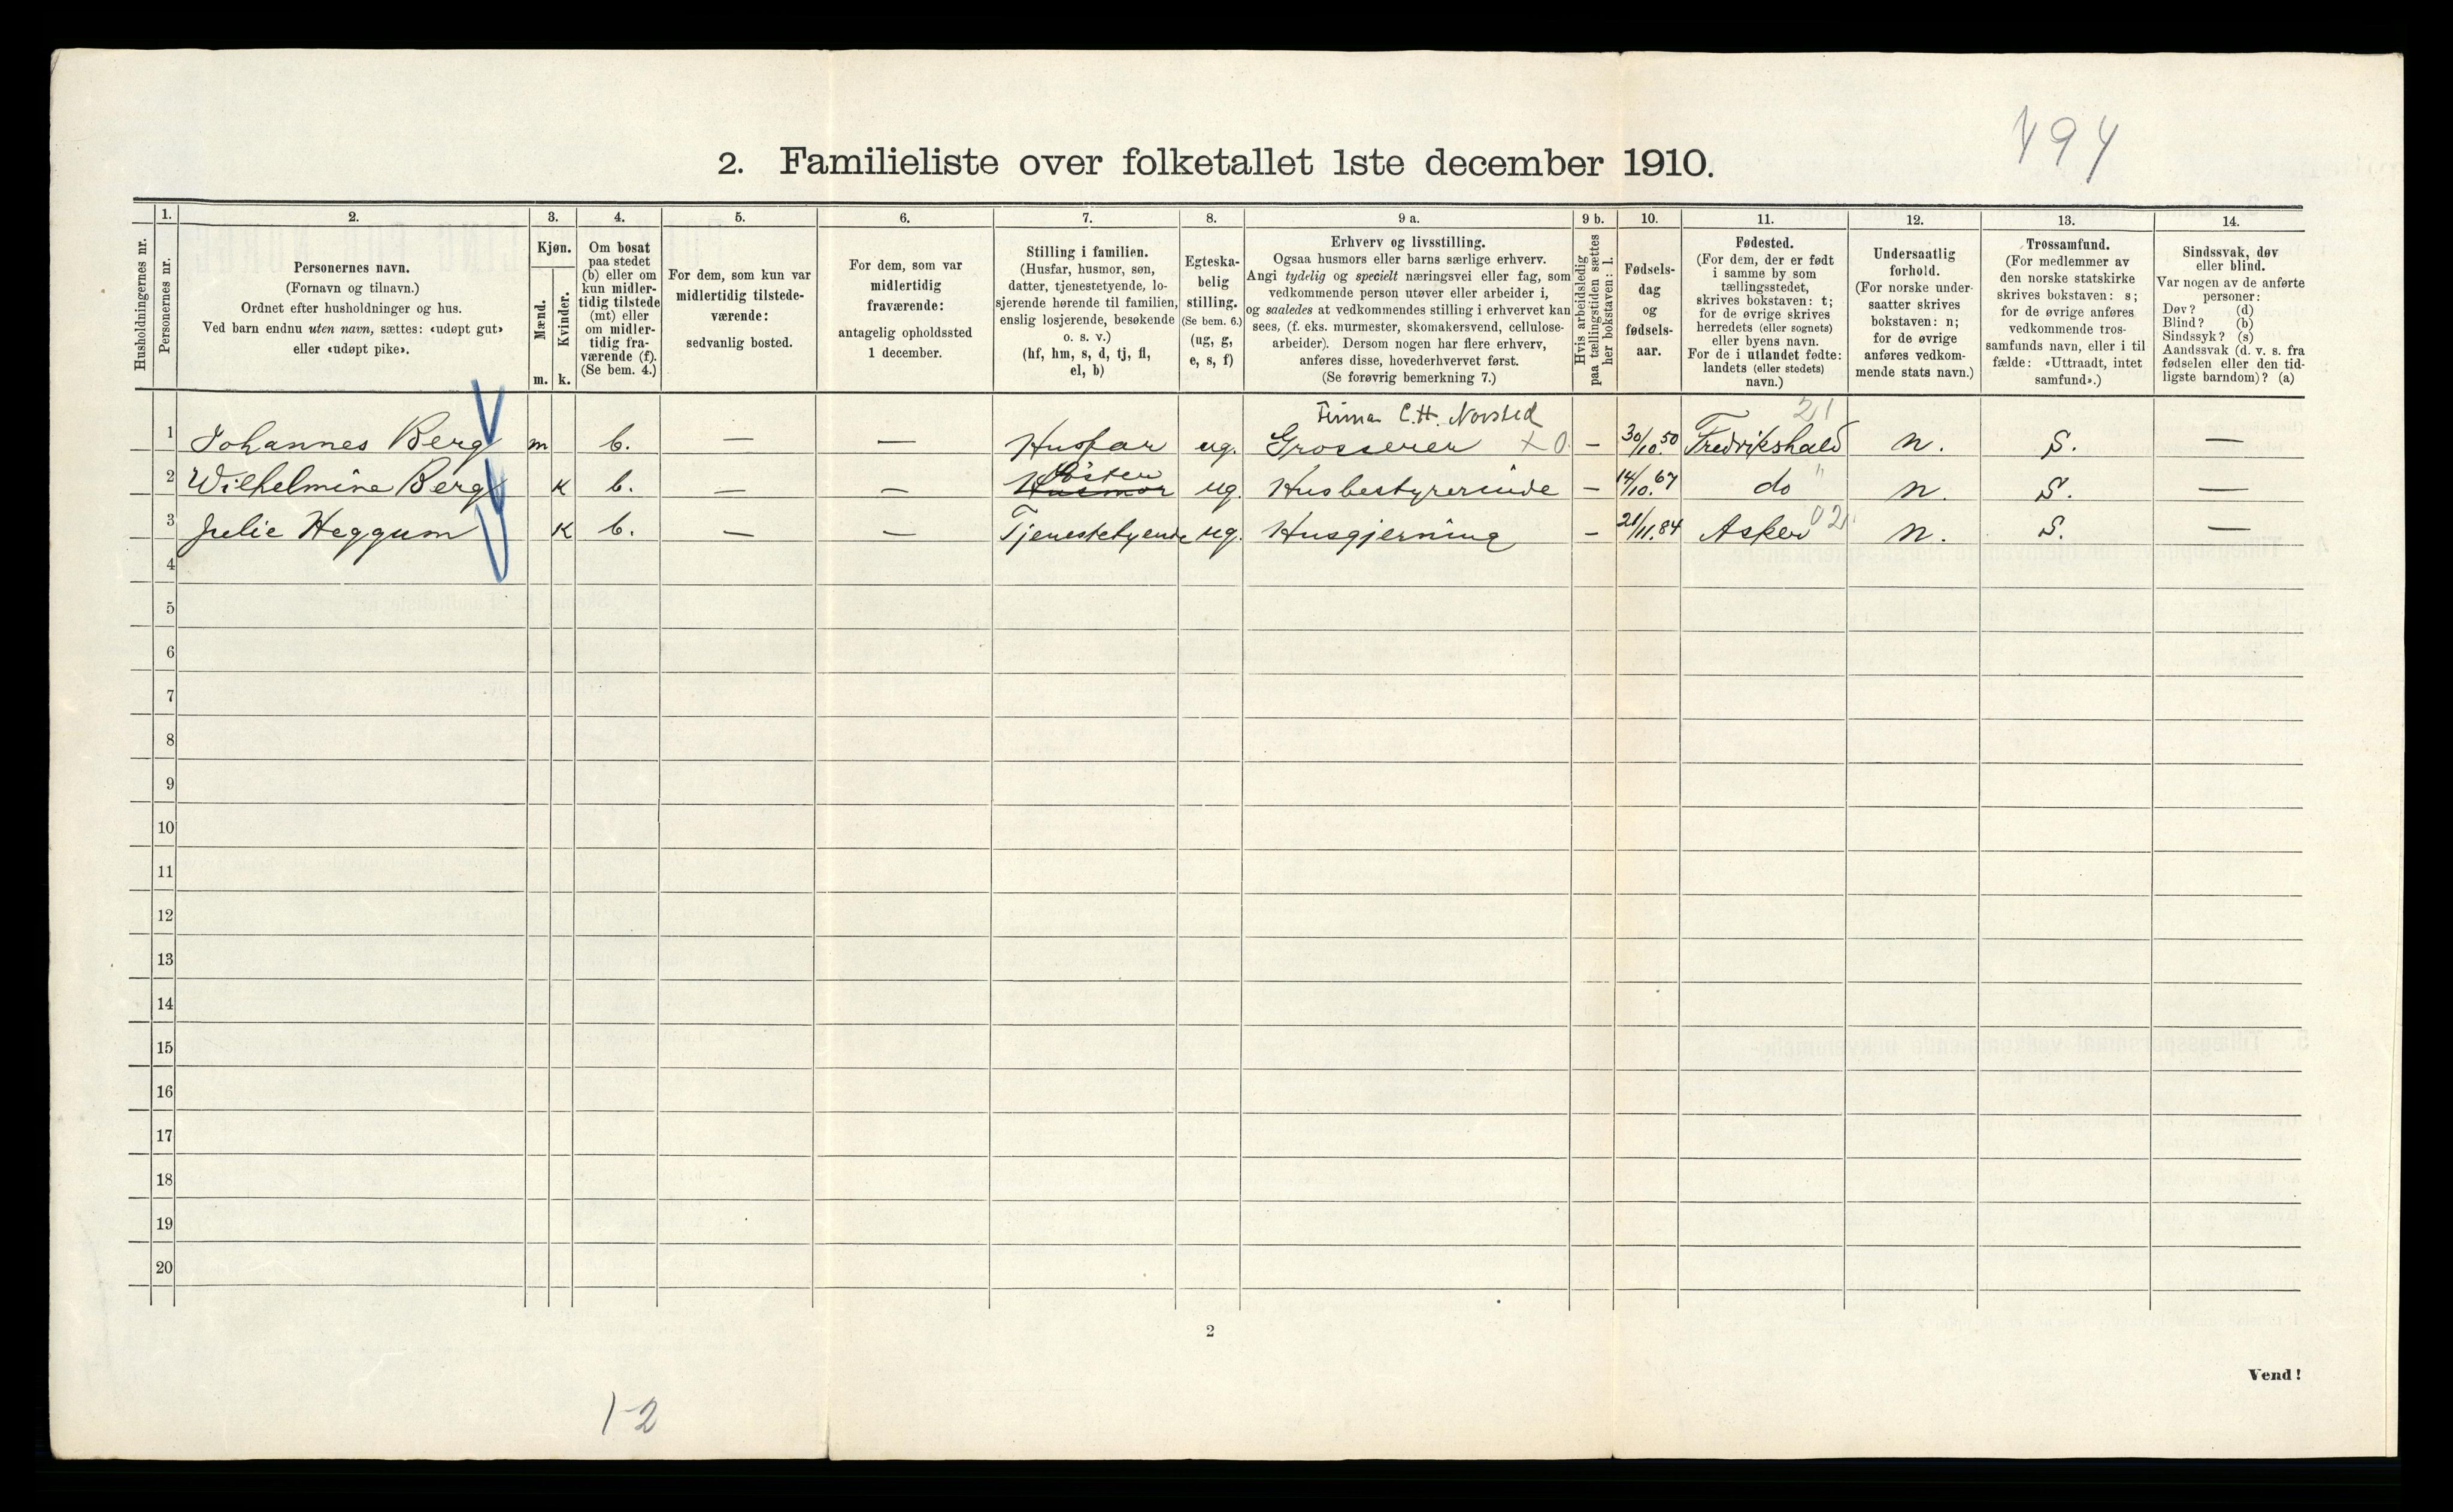 494
2. Familieliste over folketallet 1ste december 1910.
Husholdningernes nr.
1.
Personernes nr.
2.
Personernes navn.
(Fornavn og tilnavn.)
Ordnet efter husholdninger og hus.
Ved barn endnu uten navn, sættes: «udøpt gut»
eller «udøpt pike».
3.
Kjøn.
Mænd.
Kvinder.
m. k.
4.
Om bosat
paa stedet
(b) eller om
kun midler-
tidig tilstede
(mt) eller
om midler-
tidig fra-
værende (f).
(Se bem. 4.)
5.
For dem, som kun var
midlertidig tilstede-
værende:
sedvanlig bosted.
6.
For dem, som var
midlertidig
fraværende:
antagelig opholdssted
1 december.
7.
Stilling i familien.
(Husfar, husmor, søn,
datter, tjenestetyende, lo-
sjerende hørende til familien,
enslig losjerende, besøkende
o. s. v.)
(hf, hm, s, d, tj, fl,
el, b)
8.
Egteska-
belig
stilling.
(Se bem. 6.)
(ug, g,
e, s, f)
9 a.
Erhverv og livsstilling.
Ogsaa husmors eller barns særlige erhverv.
Angi tydelig og specielt næringsvei eller fag, som
vedkommende person utøver eller arbeider i,
og saaledes at vedkommendes stilling i erhvervet kan
sees, (f. eks. murmester, skomakersvend, cellulose-
arbeider). Dersom nogen har flere erhverv,
anføres disse, hovederhvervet først.
(Se forøvrig bemerkning 7.)
9 b.
Hvis arbeidsledig
paa tællingstiden sættes
her bokstaven: l.
10.
Fødsels-
dag
og
fødsels-
aar.
11.
Fødested.
(For dem, der er født
i samme by som
tællingsstedet,
skrives bokstaven: t;
for de øvrige skrives
herredets (eller sognets)
eller byens navn.
For de i utlandet fødte:
landets (eller stedets)
navn.)
12.
Undersaatlig
forhold.
(For norske under-
saatter skrives
bokstaven: n;
for de øvrige
anføres vedkom-
mende stats navn.)
13.
Trossamfund.
(For medlemmer av
den norske statskirke
skrives bokstaven: s;
for de øvrige anføres
vedkommende tros-
samfunds navn, eller i til
fælde: «Uttraadt, intet
samfund».)
14.
Sindssvak, døv
eller blind.
Var nogen av de anførte
personer:
Døv? (d)
Blind? (b)
Sindssyk? (s)
Aandssvak (d. v. s. fra
fødselen eller den tid-
ligste barndom)? (a)
Firma C.H. Norsted 21
1 Johannes Berg m b. — — Husfar ug. Grosserer x 0 – 30/10.50 Fredrikshald n. S. —
Søster
2 Wilhelmine Berg K b. — — Husmor ug. Husbestyrerinde – 14/10.67 do " n. S. —
3 Julie Heggum K b. — — Tjenestetyende ug. Husgjerning – 21/11.84 Asker 02 n. S. —
4
5
6
7
8
9
10
11
12
13
14
15
16
17
18
19
20
2
Vend!
1-2